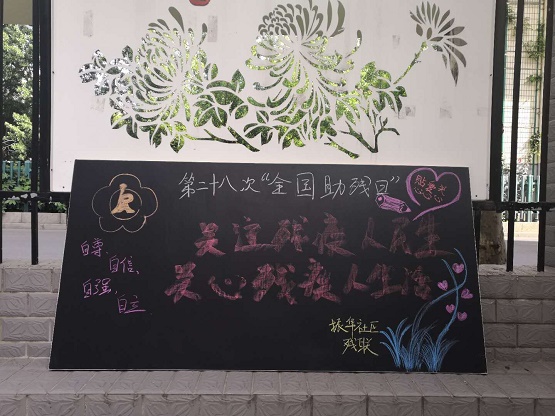 第二十八次“全国助残日”
关注残疾人民生
关心残疾人生活
自尊、
自信、
自强、
自立
振华社区
残联